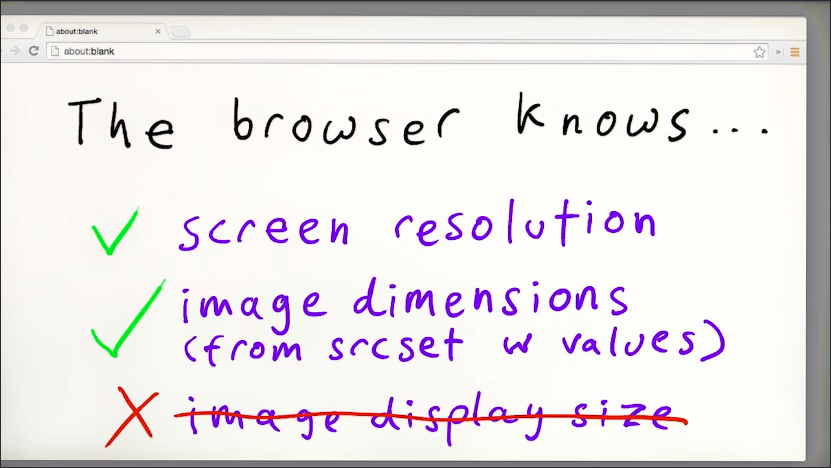 about:blank
about:blank
The browser knows...
screen resolution
image dimensions
(from srcset w values)
image display size